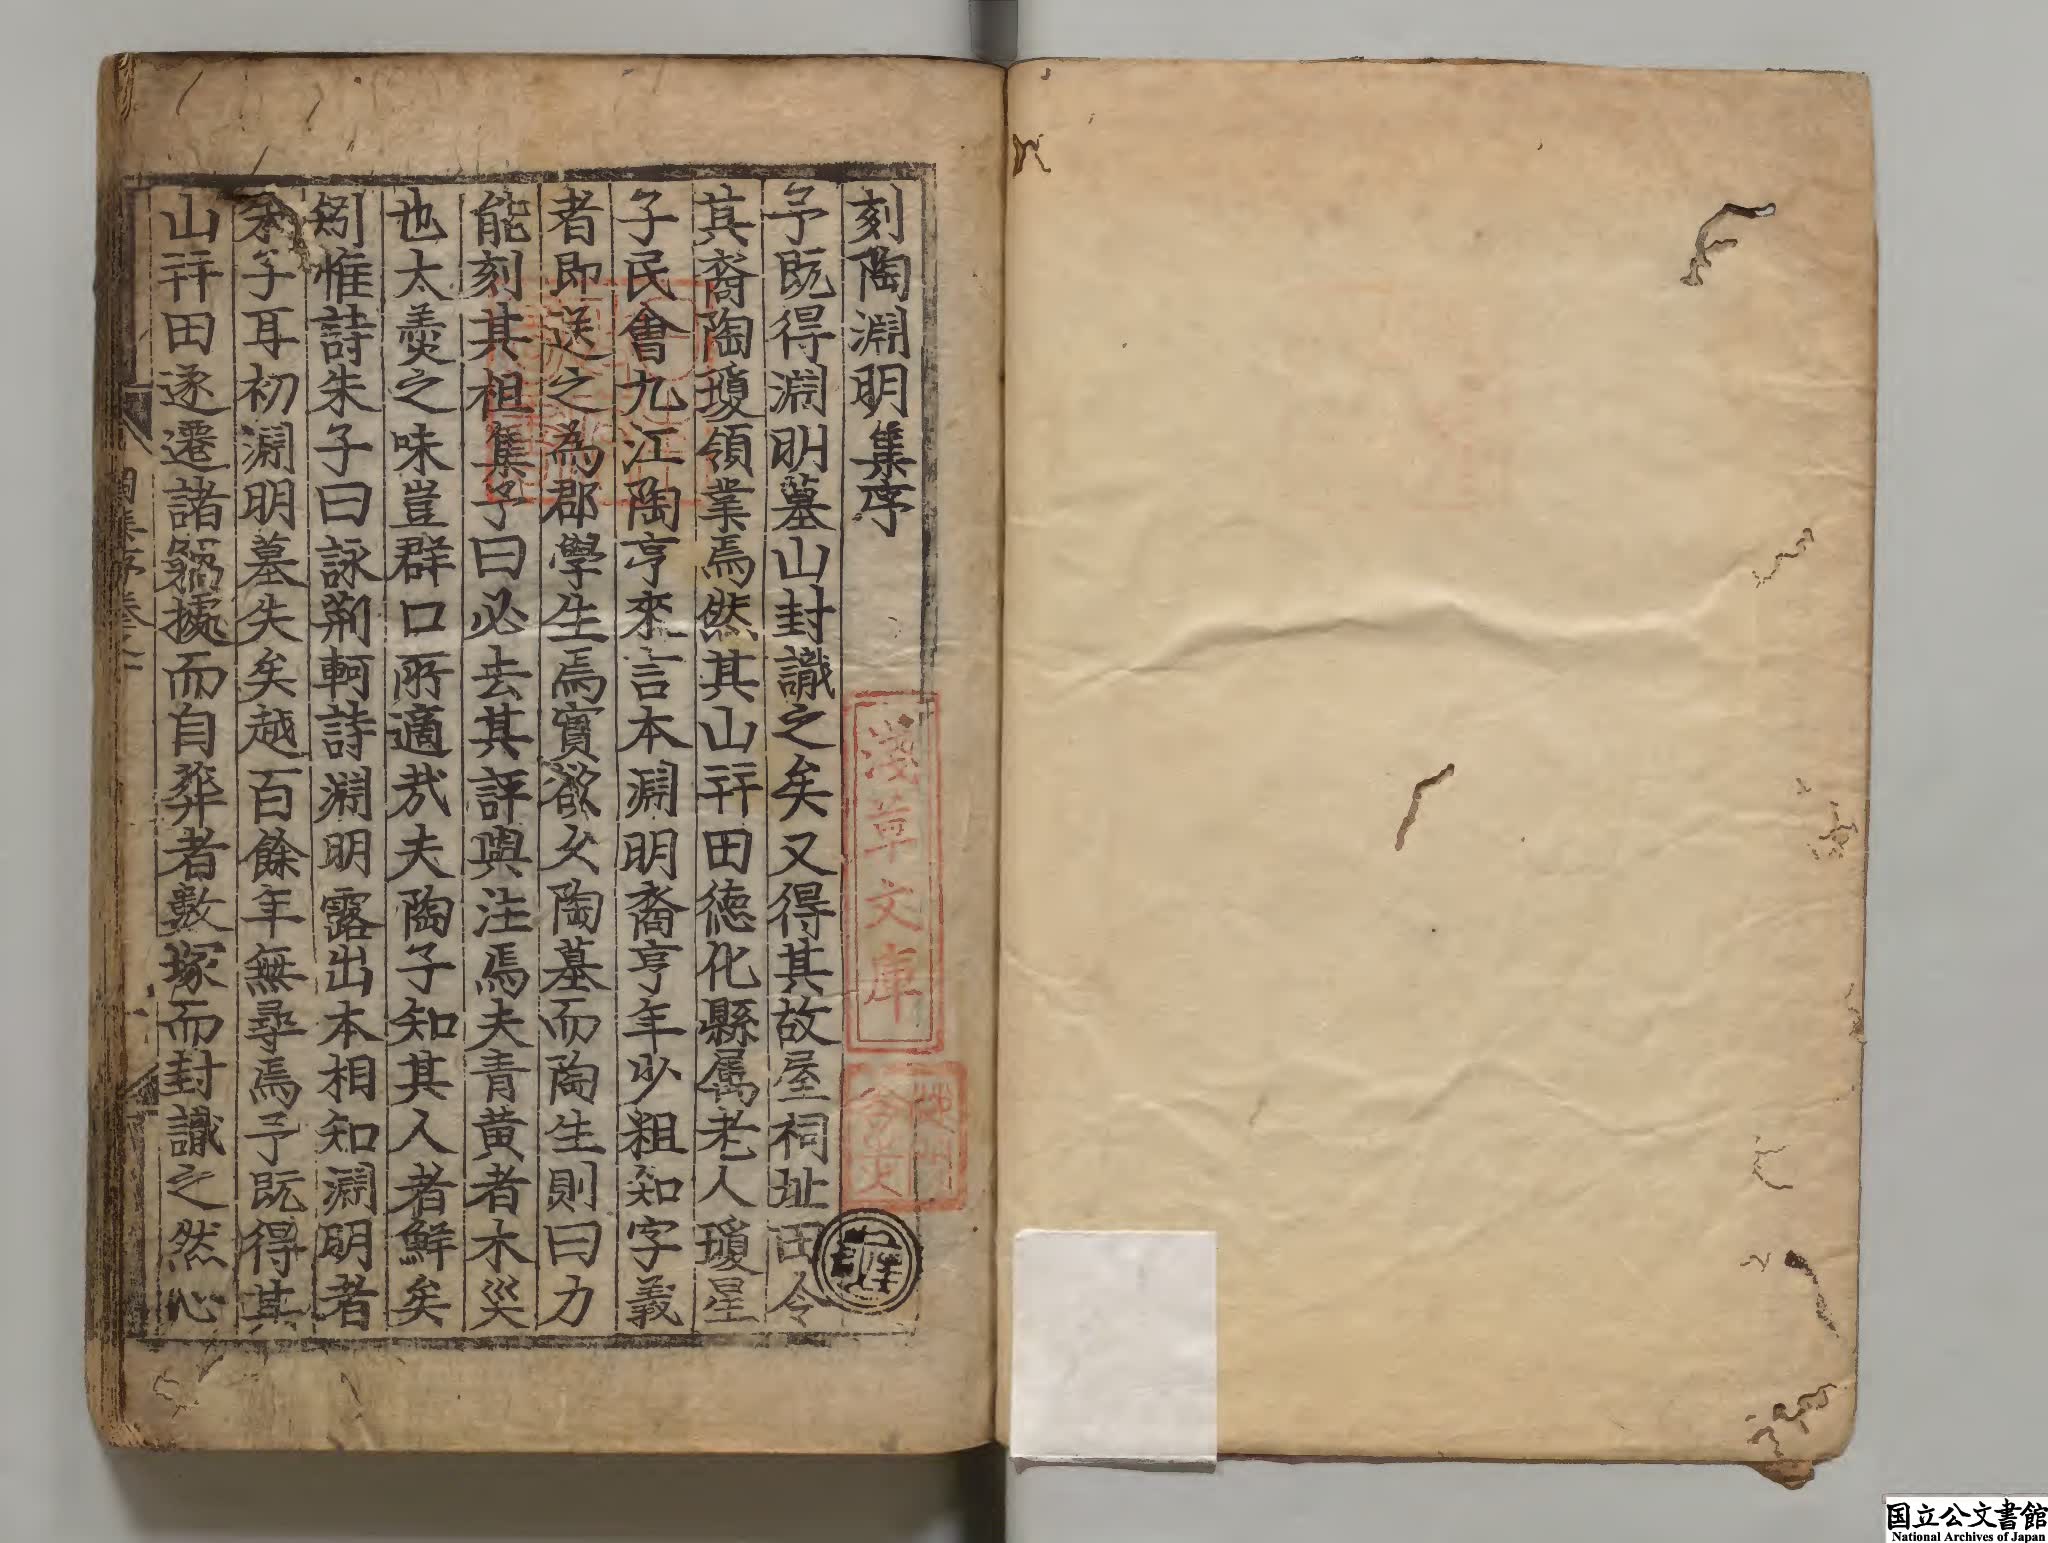 刻陶淵明集序
予既得淵明墓山封識之矣又得其故屋祠址田令
其裔陶瓊領業焉然其山幵田德化縣屬老人瓊星
子民會九江陶亨來言本淵明裔亨年少粗知字義
者即送之為郡學生焉實欲久陶墓而陶生則曰力
能刻其祖集予曰必去其評與注焉夫青黃者木災
也太羹之味豈群口所適哉夫陶子知其人者鮮矣
矧惟詩朱子曰詠荊軻詩淵明露出本相知淵明者
朱子耳初淵明墓失矣越百餘年無尋焉予既得其
山幵田遂遷諸竊據而自葬者數塚而封識之然心
淺草文庫
国立公文書館
National Archives of Japan